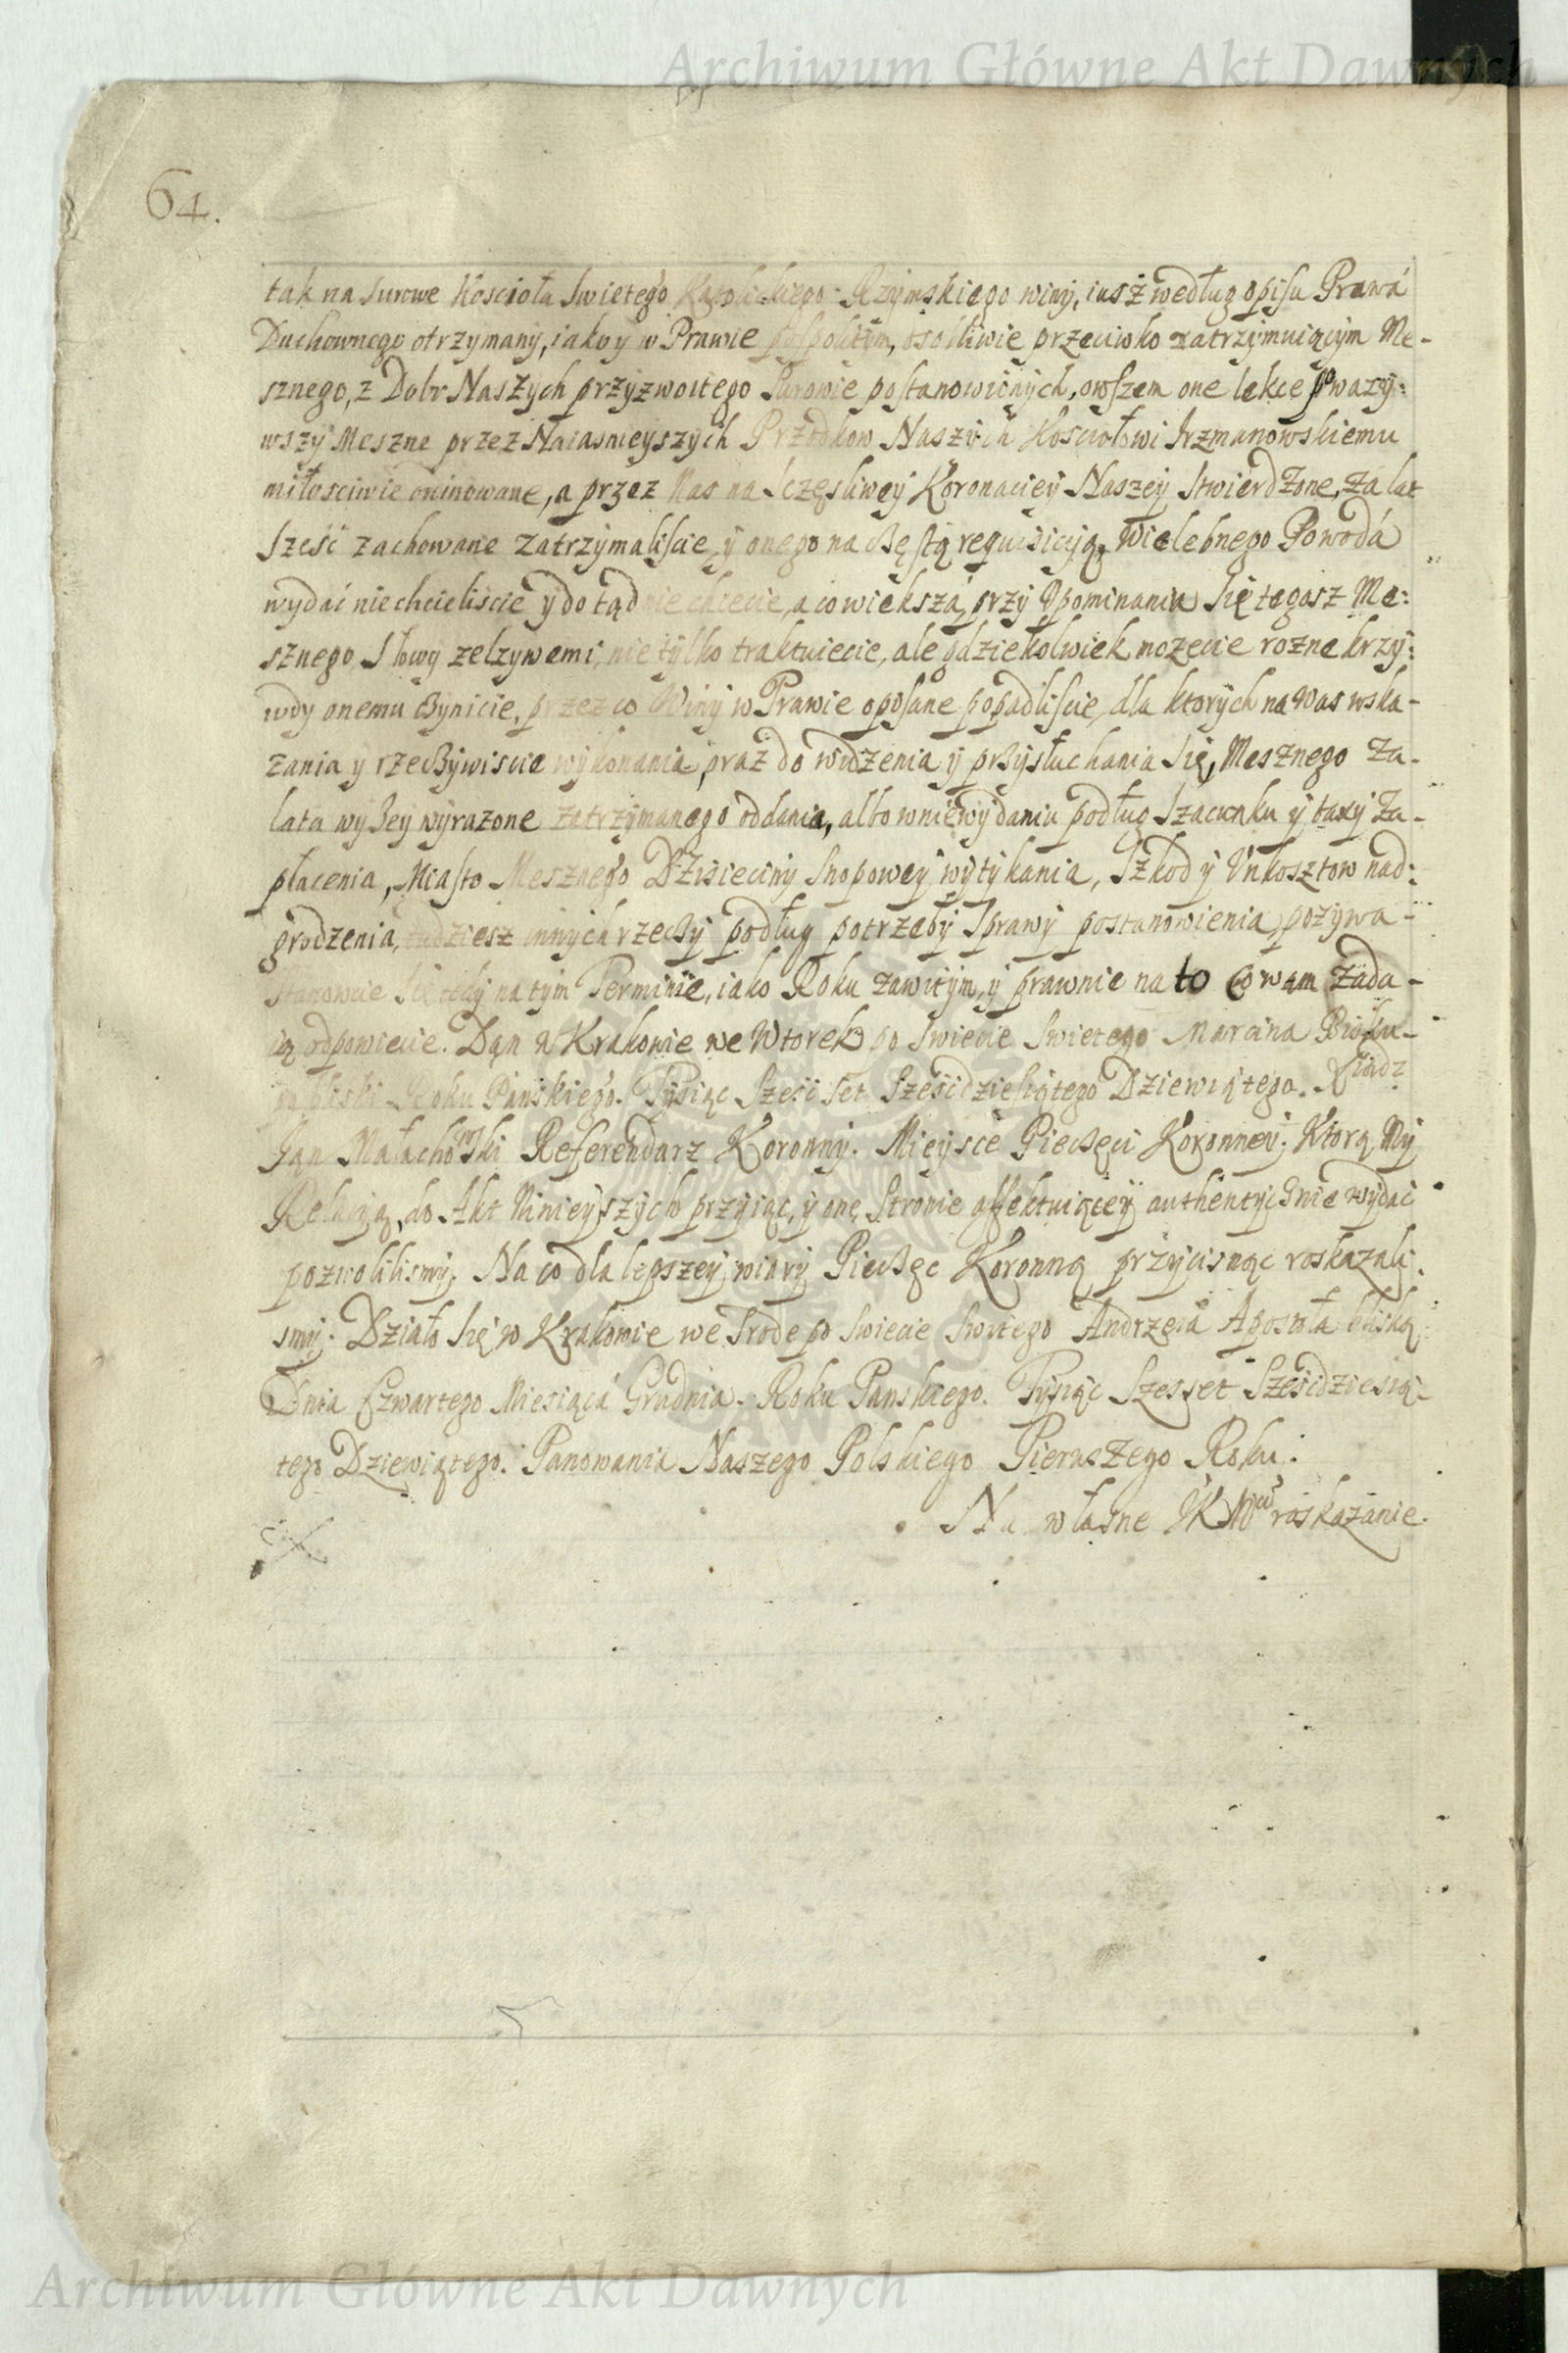 Archiwum Główne Akt Dawnych
64.
tak na surowe Koscioła Swietego Katolickiego Rzymskiego winy, iusz według opisu Prawá
Duchownego otrzymany, iako y w Prawie pospolitym, osobliwie przeciwko zatrzymuiącym Me-
sznego, z Dobr Naszych przyzwoitego Surowie postanowionych, owszem one lekce poważy:
wszy Meszne przez Naiasnieyszych Przodkow Naszych Kosciołowi Irzmanowskiemu
miłosciwie oninowane, a przez Nas na Sczęsliwey Koronaciey Naszey Stwierdzone, za lat
Sześć zachowane zatrzymaliscie, y onego na częstą requisicyią, Wielebnego Powodá
wydać nie chcieliscie y do tąd nie chcecie, a co większá, przy Upominaniu Się tegosz Me:
sznego Słowy zelzywemi, nie tylko traktuiecie, ale gdziekolwiek mozecie rozne krzy:
wdy onemu czynicie, przez co Winy w Prawie opisane popadliscie, dla ktorych na Was wska-
zania y rzeczywiscie wykonania, oraz do widzenia y przysłuchania Się, Mesznego Za-
lata wyzey wyrazone zatrzymanego oddania, albo w niewydaniu podług Szacunku y taxy Za-
płacenia, Miasto Mesznego Dziesieciny Snopowey wytykania, Szkod y Unkosztow nad:
grodzenia, tudziesz innych rzeczy podług potrzeby Sprawy postanowienia, pozywa-
Stanowcie Się tedy na tym Terminie, iako Roku zawitym, y prawnie na to co wam zada-
ią odpowiecie. Dan w Krakowie we Wtorek po Swiecie Swietego Marcina Bisku-
pa bliski Roku Panskiego. Tysiąc Sześć Set Sześćdziesiątego Dziewiątego. Xiądz
Jan Małachowski Referendarz Koronny. Mieysce Pieczęci Koronney. Ktorą My
Relacyą, do Akt Ninieyszych przyiąc, y onę Stronie affektuiącey authentycznie wydać
pozwolilismy. Na co dla lepszey wiary Pieczęc Koronną przycisnąc roskazali:
smy. Działo Się w Krakowie we Srode po Swiecie Swietego Andrzeia Apostoła bliską
Dnia Czwartego Miesiąca Grudnia. Roku Panskiego. Tysiąc Szesset Sześćdziesią-
tego Dziewiątego. Panowania Naszego Polskiego Pierwszego Roku.
Na własne JKMci roskazanie.
Archiwum Główne Akt Dawnych